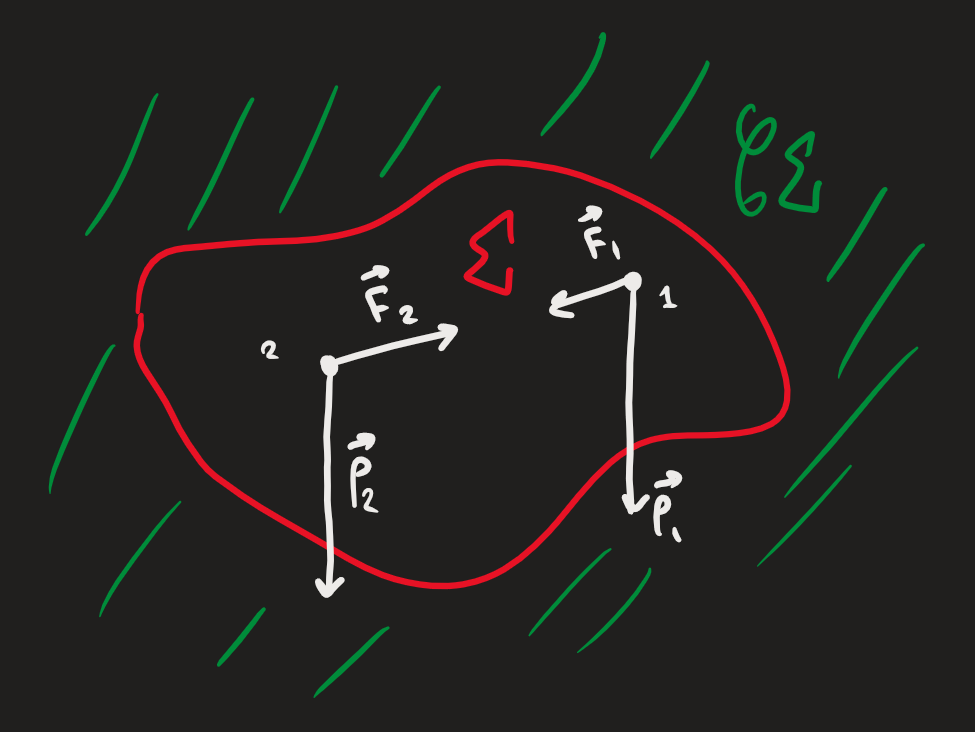 𝒞Σ
Σ
F⃗₁
1
F⃗₂
2
P⃗₂
P⃗₁